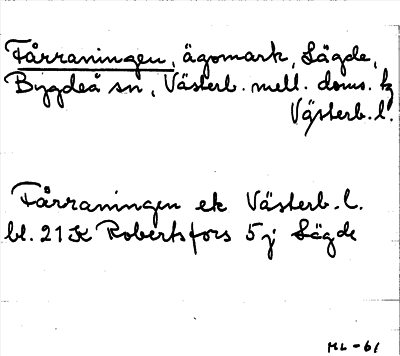 Fårraningen, ägomark, Sägde,
Bygdeå sn, Västerb. mell. doms. tg
Västerb. l.
Fårraningen ek Västerb. l.
bl. 21 K Robertsfors 5 j Sägde
ML-61